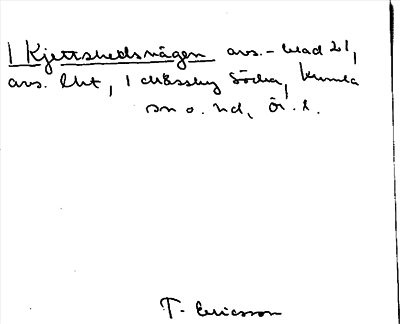 1 Kjettshedsvägen avs. - blad 21,
avs. lht, 1 Mossby Södra, Kumla
sn o. hd, Ör. l.
T. Ericsson